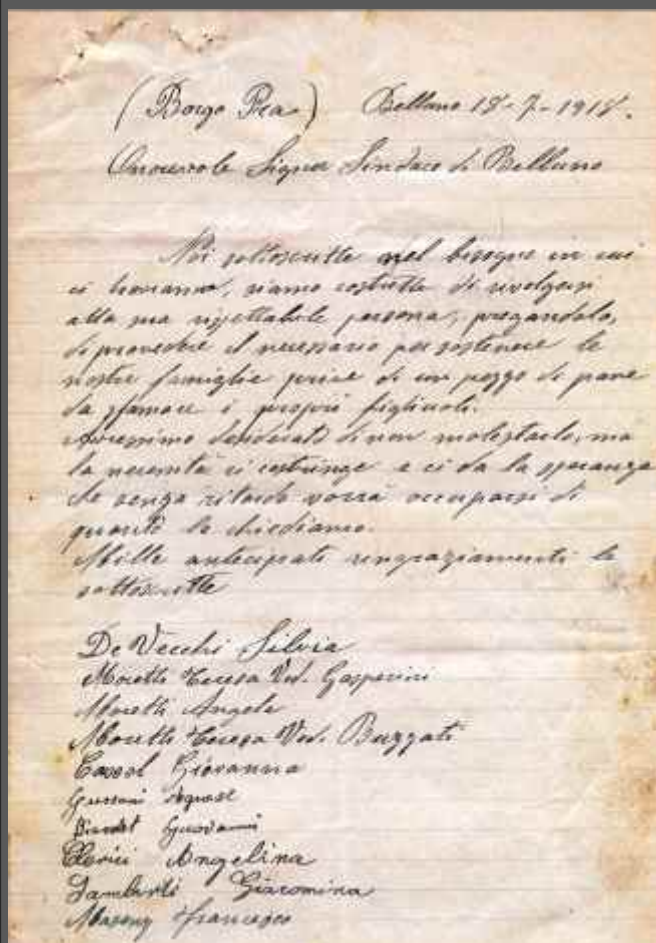 (Borgo Pra) Belluno 18-7-1918.
Onorevole Signor Sindaco di Belluno
Noi sottoscritte nel bisogno in cui
ci troviamo, siamo costrette di rivolgersi
alla sua rispettabile persona, pregandola,
di provedere il necessario per sostenere le
nostre famiglie prive di un pezzo di pane
da sfamare i propri figliuoli.
Avressimo desiderato di non molestarlo, ma
la necessità ci costringe e ci da la speranza
che senza ritardo vorrà occuparsi di
quanto la chiediamo.
Mille anticipati ringraziamenti le
sottoscritte
De Vecchi Silvia
Moretti Teresa Ved. Gasperini
Moretti Angela
Moretti Teresa Ved. Buzzati
Casol Giovanna
Agnese
Giovanni
Clerici Angelina
Lamberti Giacomina
Francesco